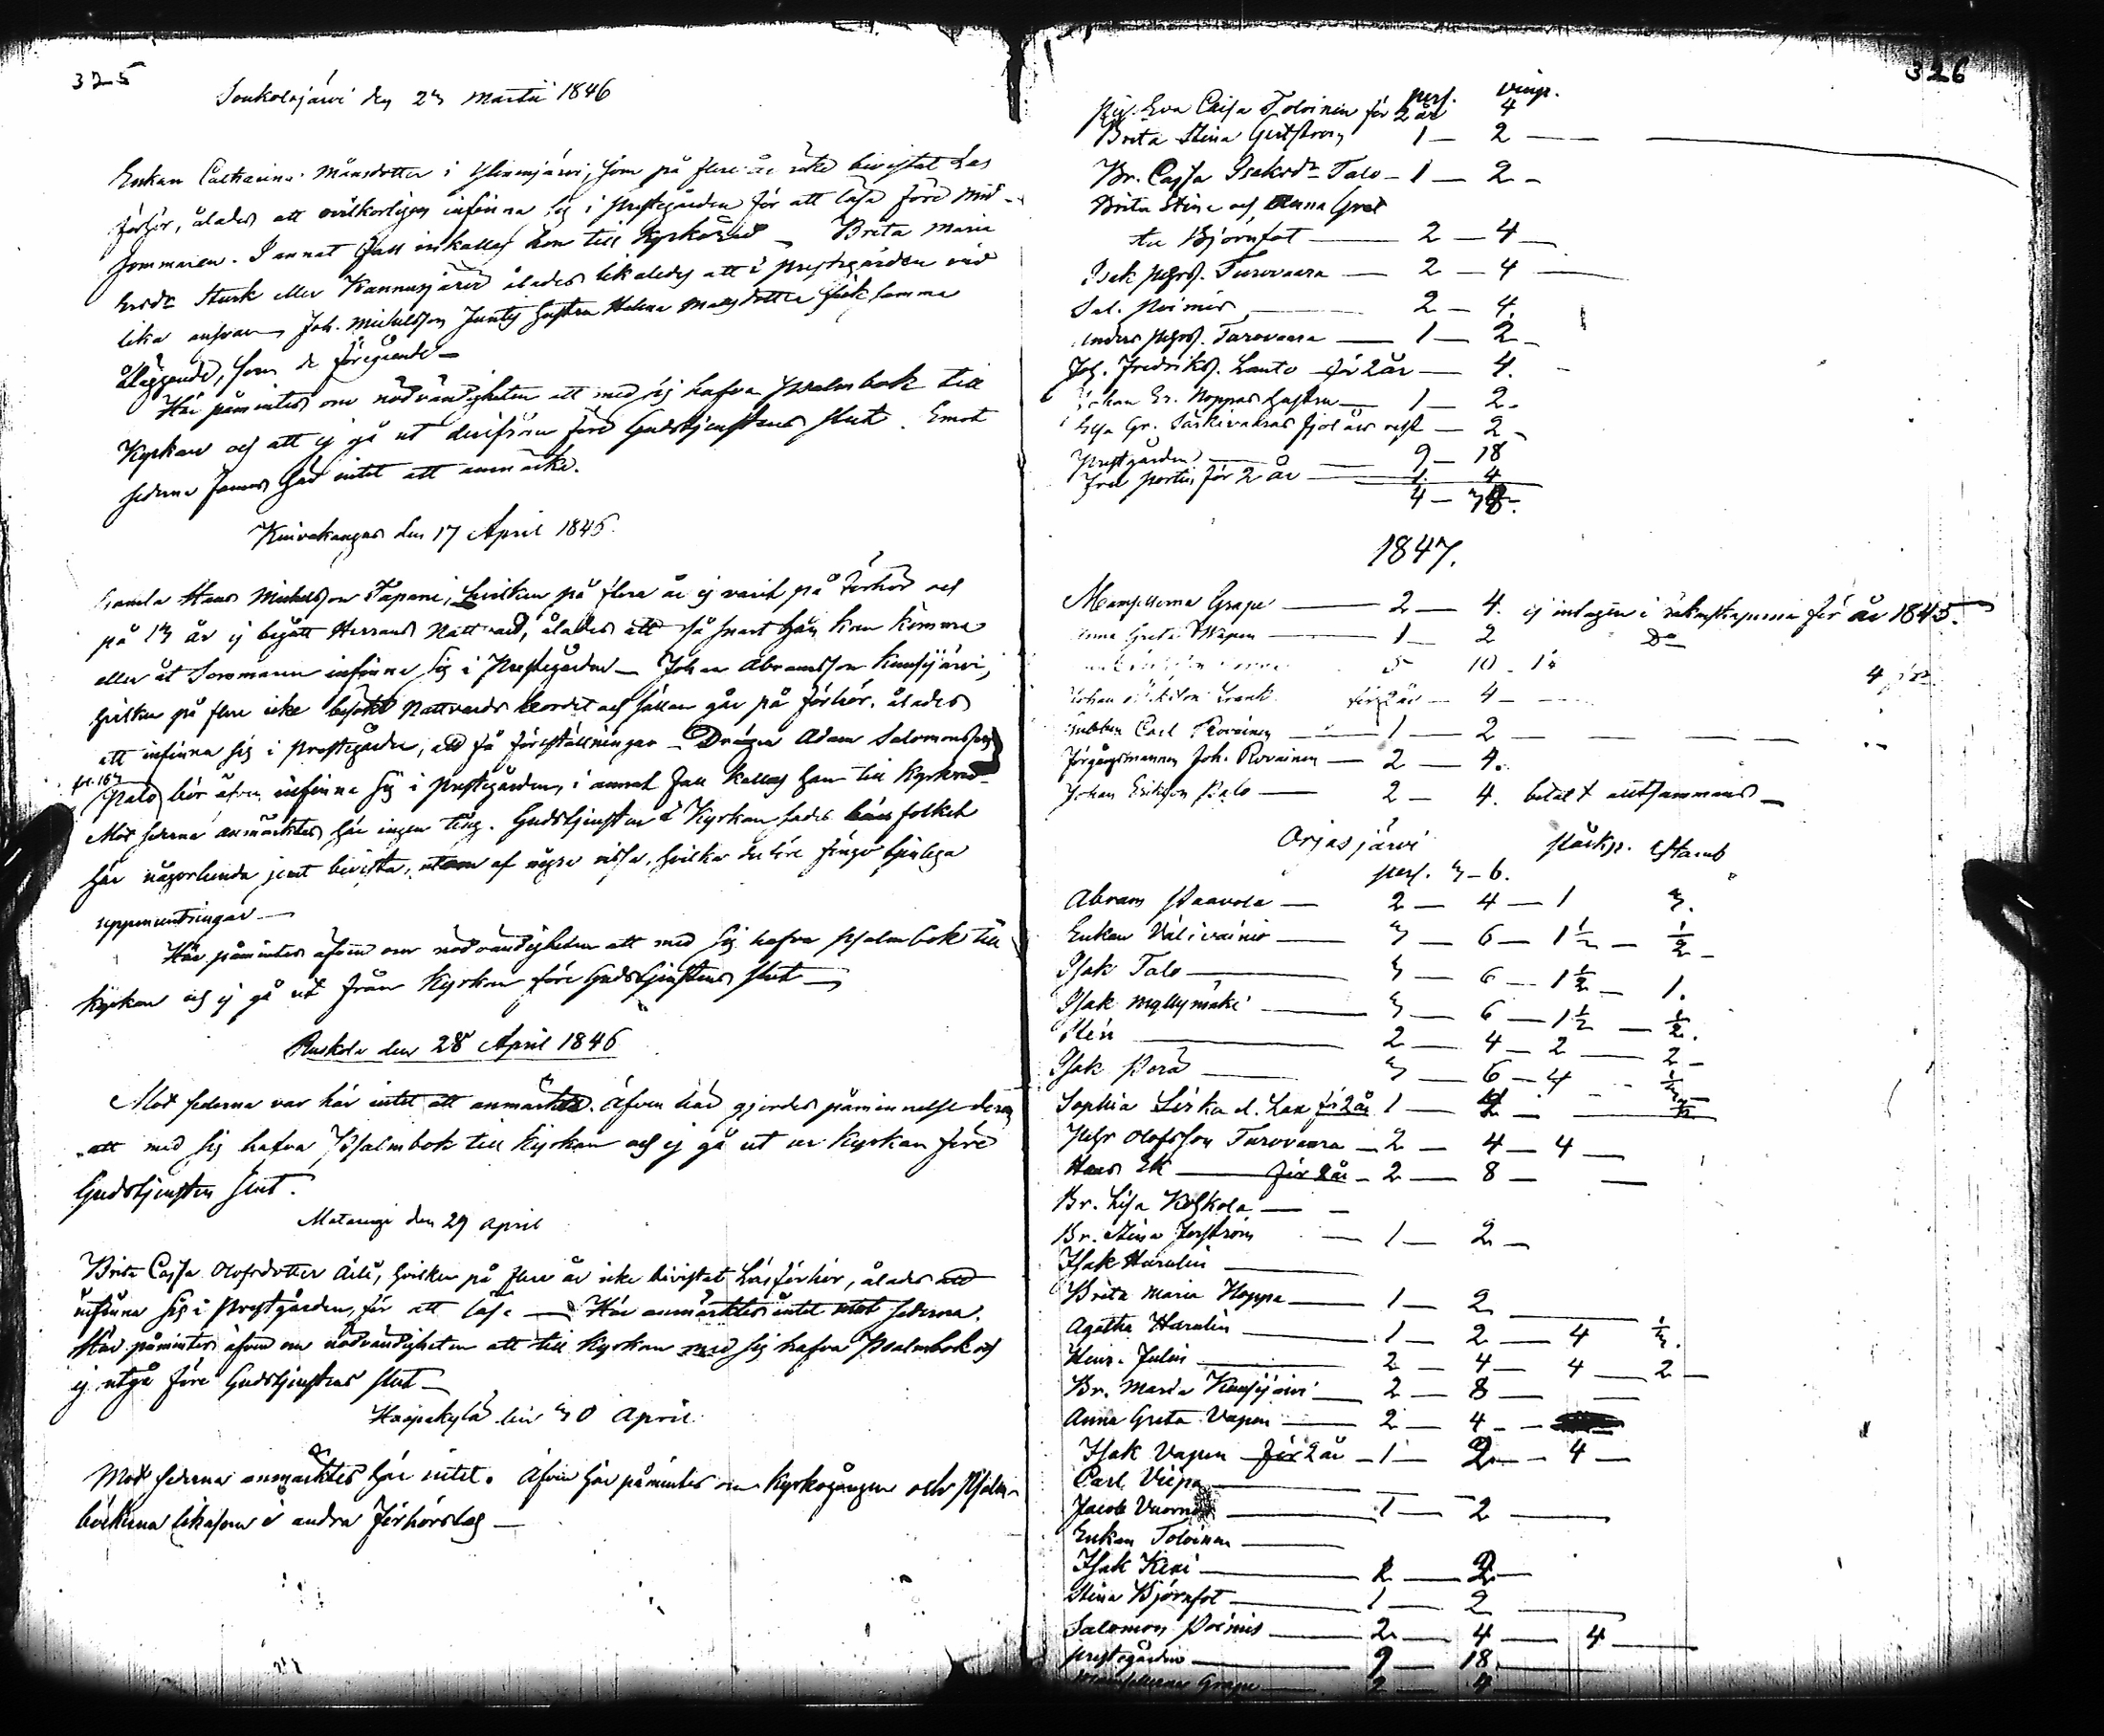 325
Soukolojärvi den 23 Martii 1846
Enkan Catharina Månsdotter i, som på flere år icke bivistat Läs
förhör, ålades att ovilkorligen infinna sig i prestgården för att läsa före Mid-
sommaren. I annat fall inkallas hon till Kyrkoråd — Brita Maria
Ersdr Stark eller Kannusjärvi ålades likaledes att i prestgården vid
lika ansvar, Joh. Michelsson Juntis hustru Helena Matsdotter fick samma
åläggande, som de föregående —
Här påmintes om nödvändigheten att med sig hafva psalmbok till
Kyrkan och att ej gå ut derifrån före Gudstjenstens slut. Emot
sederna fanns här intet att anmärka.
Kuivakangas den 17 April 1846
Gamla Hans Michelsson Tapani, hvilken på flera år ej varit på Förhör och
på 13 år ej begått Herrans Nattvard, ålades att så snart han kan komma
eller åt Sommaren infinna sig i Prestegården — Johan Abramsson Kuusijärvi,
hvilken på flere icke besökt Nattvards bordet och sällan går på förhör, ålades
att infinna sig i prestegården, att få föreställningar — Drängen Adam Salomonsson
Palo bör äfven infinna sig i prestegården, i annat fall kallas han till Kyrkoråd —
Mot sederna anmärktes här ingen ting. Gudstjensten i Kyrkan sades folket
här någorlunda jemt bivista, utom af några vissa, hvilka derföre fingo tjenliga
uppmuntringar —
Här påmintes äfven om nödvändigheten att med sig hafva psalmbok till
kyrkan och ej gå ut från Kyrkan före Gudstjenstens slut —
Ruskola den 28 April 1846
Mot sederna var här intet att anmärka. Äfven här gjordes påminnelse derom
att med sig hafva Psalmbok till Kyrkan och ej gå ut ur Kyrkan före
Gudstjensten slut.
Matarengi den 29 April
Brita Cajsa Olofsdotter, hvilken på flere år icke bivistat Läsförhör, ålades att
infinna sig i prestgården, för att läsa — Här anmärktes intet mot sederna.
Här påmintes äfven om nödvändigheten att till Kyrkan med sig hafva Psalmbok och
ej utgå före Gudstjenstens slut —
Haapakylä den 30 April
Mot sederna anmärktes här intet. Äfven här påmintes om Kyrkogången och Psalm-
böckerna likasom i andra Förhörslag —
326
pers. 
Pig. Eva Cajsa Toloinen för 2 år 4
Brita Stina Gertström 1 — 2 —
Br. Cajsa Isaksdr Talo — 1 — 2 —
Brita Stina och Anna Gret
ta Björnfot — 2 — 4 —
Isak Turovaara — 2 — 4 —
Sal. Poimis — 2 — 4.
Turovaara — 1 — 2 —
Joh. Fredriks. Lanto för 2 år — 4.
Johan Er. Noppas hustru — 1 — 2 —
2 —
Prestgården — 9 — 18
för 2 år — 1. 4
1847.
Mamsellerna Grape — 2 — 4. ej intagen i räkenskaperna för år 1845.
Anna Greta Wapen — 1 — 2 Do
5 10
för 2 år — 4 —
Gubben Carl Rovainen — 1 — 2 —
Förgångsmannen Joh. Rovainen — 2 — 4.
Johan Ericsson Palo — 2 — 4. betalt alltsammans —
Orjasjärvi
pers. 3 — 6.
Abram Paavola — 2 — 4 — 1 3.
Enkan Välivainio — 3 — 6 — 1½ — ½ —
Isak Talo — 3 — 6 — 1½ — 1.
Isak Myllymäki — 3 — 6 — 1½ — ½.
— 2 — 4 — 2 — 2 —
Isak Perä — 3 — 6 — 4
Sophia för 2 år 1 —
Pehr Olofsson Turovaara — 2 — 4 — 4 —
Hans Ek — för 2 år — 2 — 8 —
Br. Lisa Koskola —
Br. Stina — 1 — 2 —
Isak Haralin —
Brita Maria Hoppa — 1 — 2 —
Agatha Haralin — 1 — 2 — 4
Henr. Julin — 2 — 4 — 4 — 2 —
Br. Maria Kuusijärvi — 2 — 8 —
Anna Greta Vapen — 2 — 4 —
Isak Vapen för 2 år — 1 — 2 — 4 —
Carl Viepa —
Jacob — 1 — 2 —
Enkan Toloinen —
Isak Keni — 2 —
Stina Björnfot — 1 — 2 —
Salomon Poimis — 2 — 4 — 4 —
Prestegården — 9 — 18 —
Mamsellerna Grape — 2 — 4 —